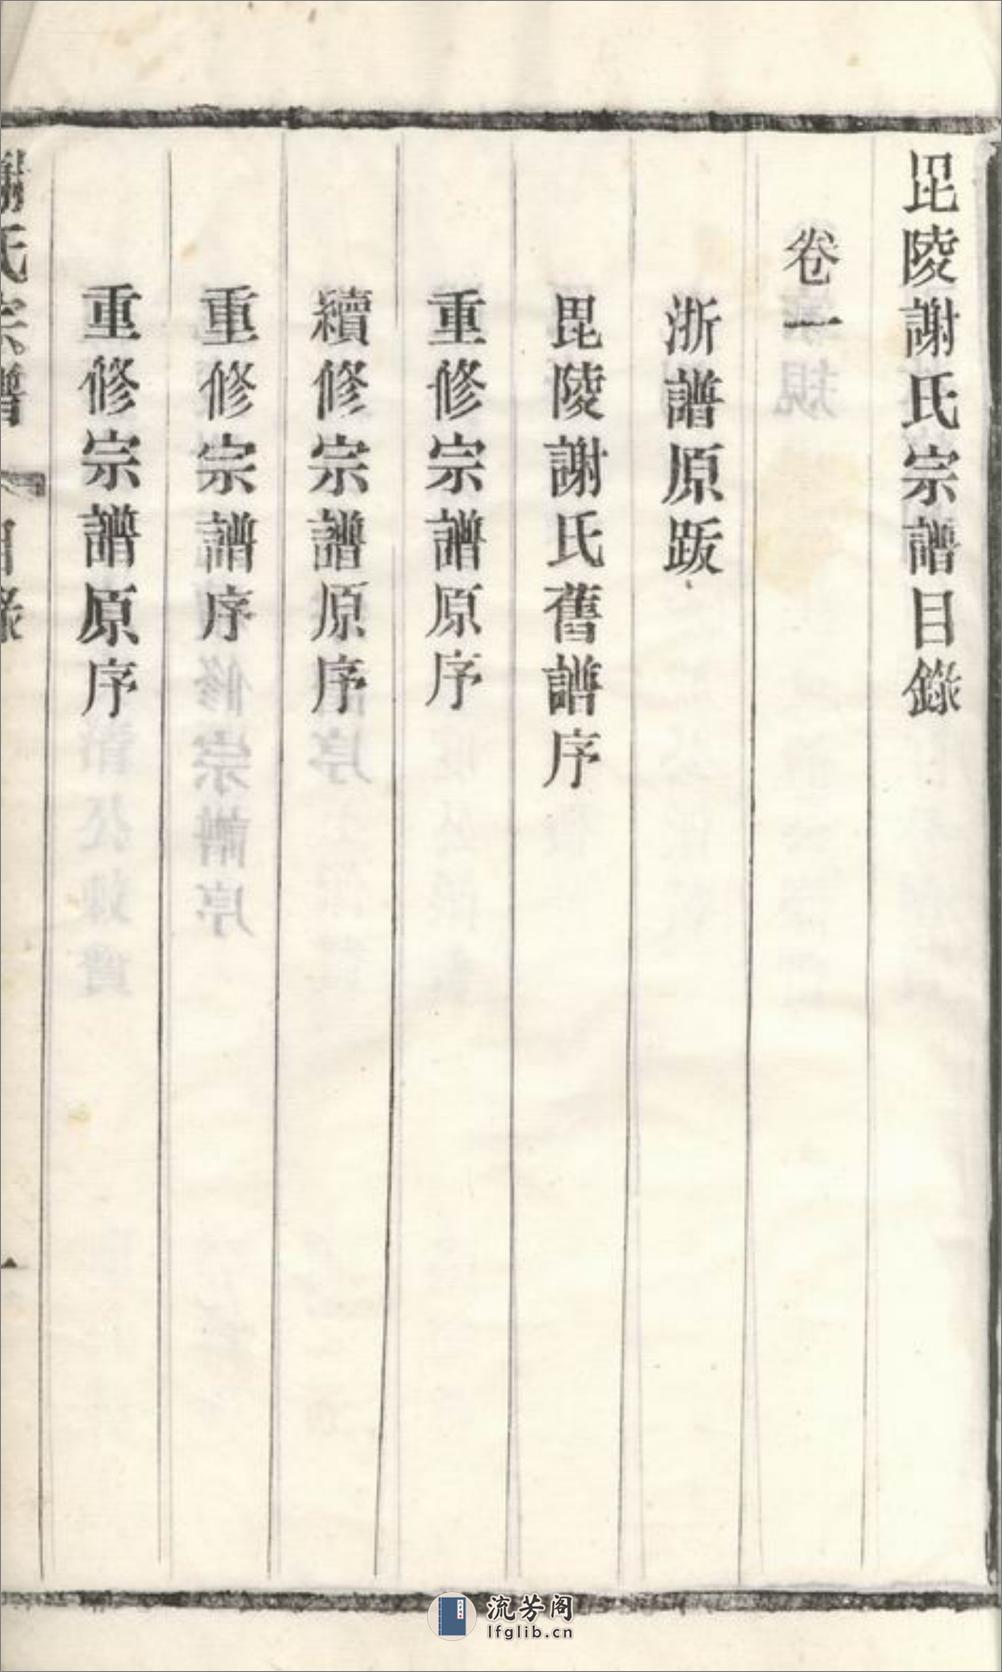 毘陵謝氏宗譜目錄
卷一
浙譜原跋
毘陵謝氏舊譜序
重修宗譜原序
續修宗譜原序
重修宗譜序
重修宗譜原序
謝氏宗譜
目錄
一
流芳阁
lfglib.cn